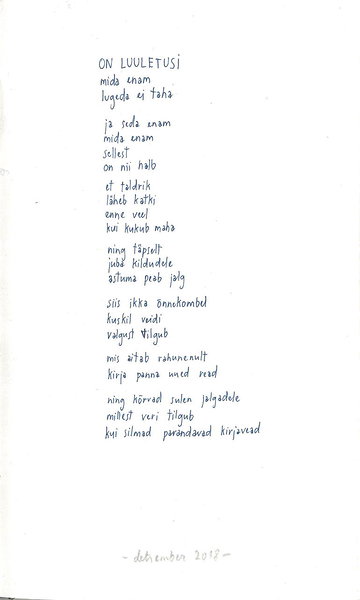 ON LUULETUSI
mida enam
lugeda ei taha
ja seda enam
mida enam
sellest
on nii halb
et taldrik
läheb katki
enne veel
kui kukub maha
ning täpselt
juba kildudele
astuma peab jalg
siis ikka õnnekombel
kuskil veidi
valgust vilgub
mis aitab rahunenult
kirja panna uned read
ning kõrvad sulen jalgadele
millest veri tilgub
kui silmad parandavad kirjavead
- detsember 2018 -